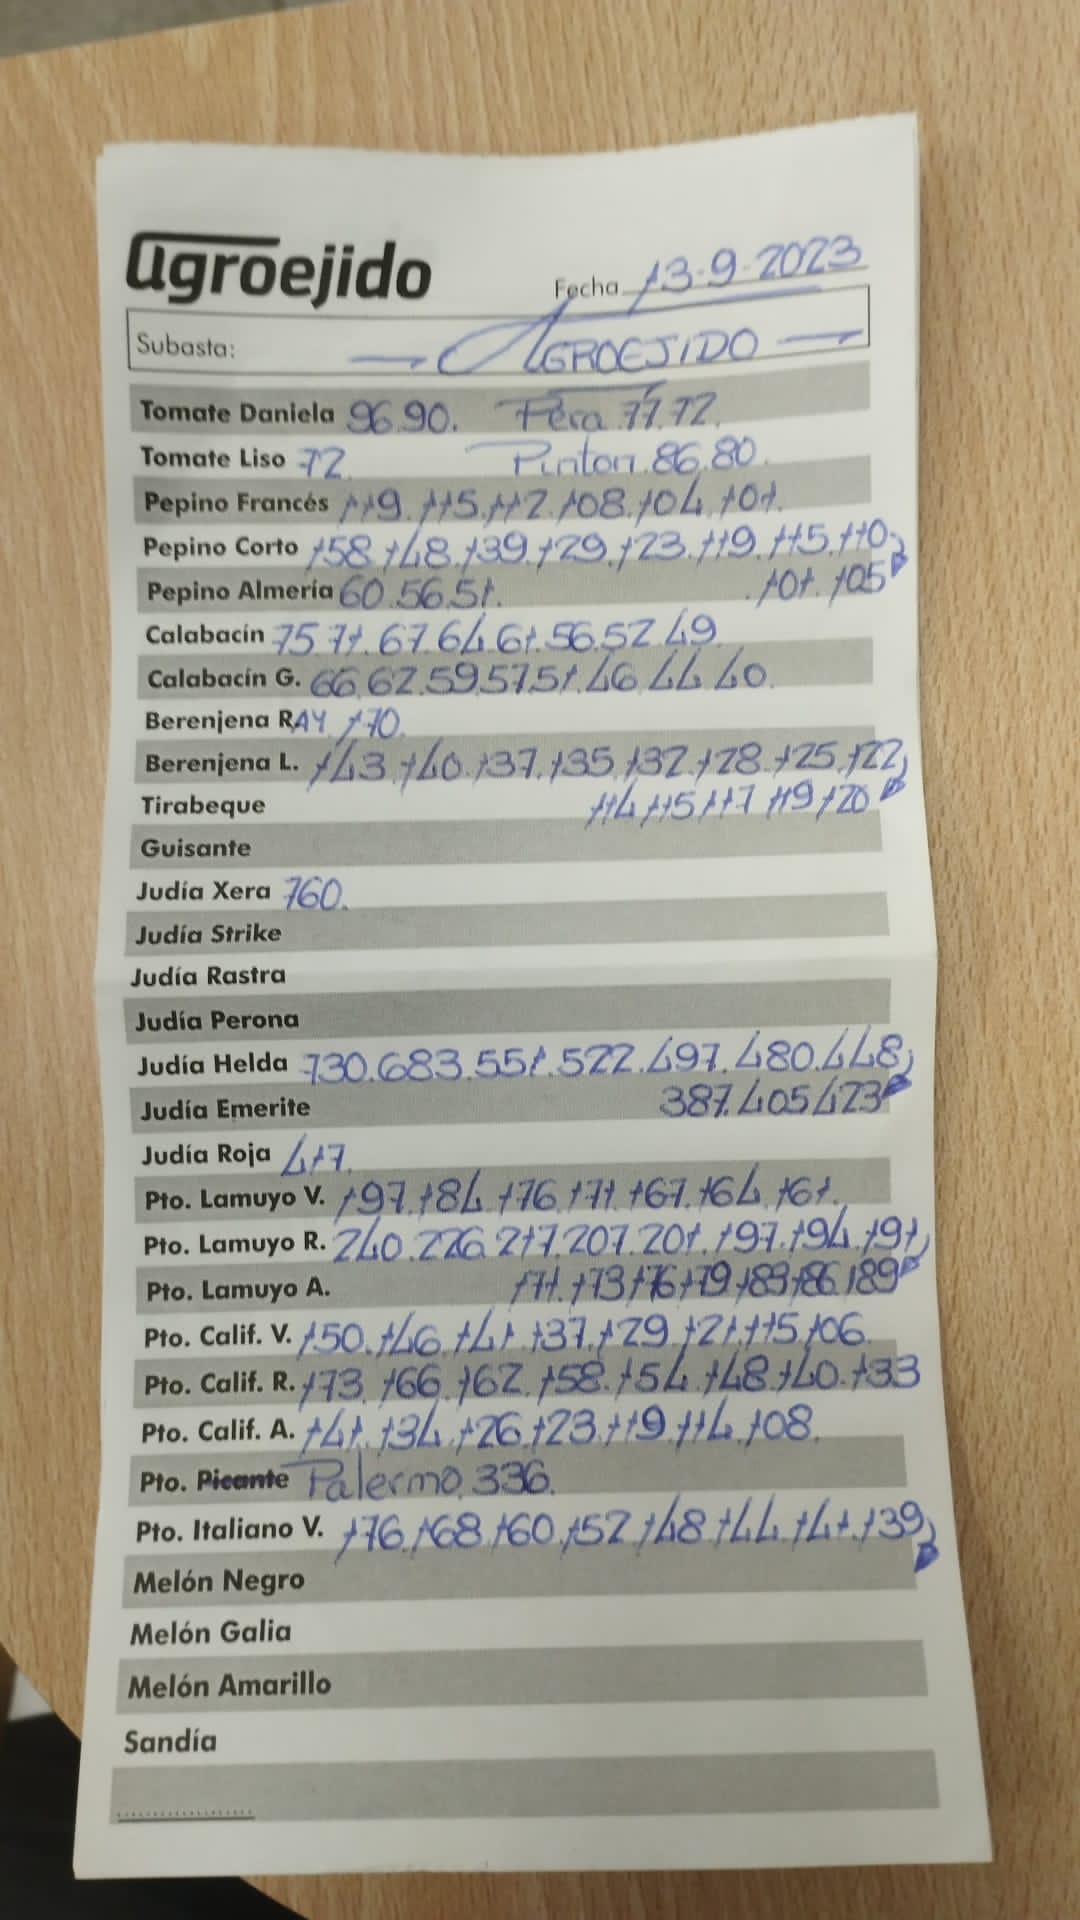 agroejido
Fecha 13-9-2023
Subasta: AGROEJIDO
Tomate Daniela 96.90. Pera 77.72.
Tomate Liso 72. Pinton 86.80.
Pepino Francés 119.115.112.108.104.101.
Pepino Corto 158.148.139.129.123.119.115.110
Pepino Almería 60.56.51. 101.105
Calabacín 75.71.67.64.61.56.52.49
Calabacín G. 66.62.59.57.51.46.44.40.
Berenjena RAY 170.
Berenjena L. 143.140.137.135.132.128.125.122
Tirabeque 114.115.117.119.120
Guisante
Judía Xera 760.
Judía Strike
Judía Rastra
Judía Perona
Judía Helda 730.683.551.522.497.480.448
Judía Emerite 387.405.423
Judía Roja 417.
Pto. Lamuyo V. 197.184.176.171.167.164.161.
Pto. Lamuyo R. 240.226.217.207.201.197.194.191
Pto. Lamuyo A. 171.173.176.179.183.186.189
Pto. Calif. V. 150.146.141.137.129.121.115.106
Pto. Calif. R. 173.166.162.158.154.148.140.133
Pto. Calif. A. 141.134.126.123.119.114.108.
Pto. Picante Palermo 336.
Pto. Italiano V. 176.168.160.152.148.144.141.139
Melón Negro
Melón Galia
Melón Amarillo
Sandía